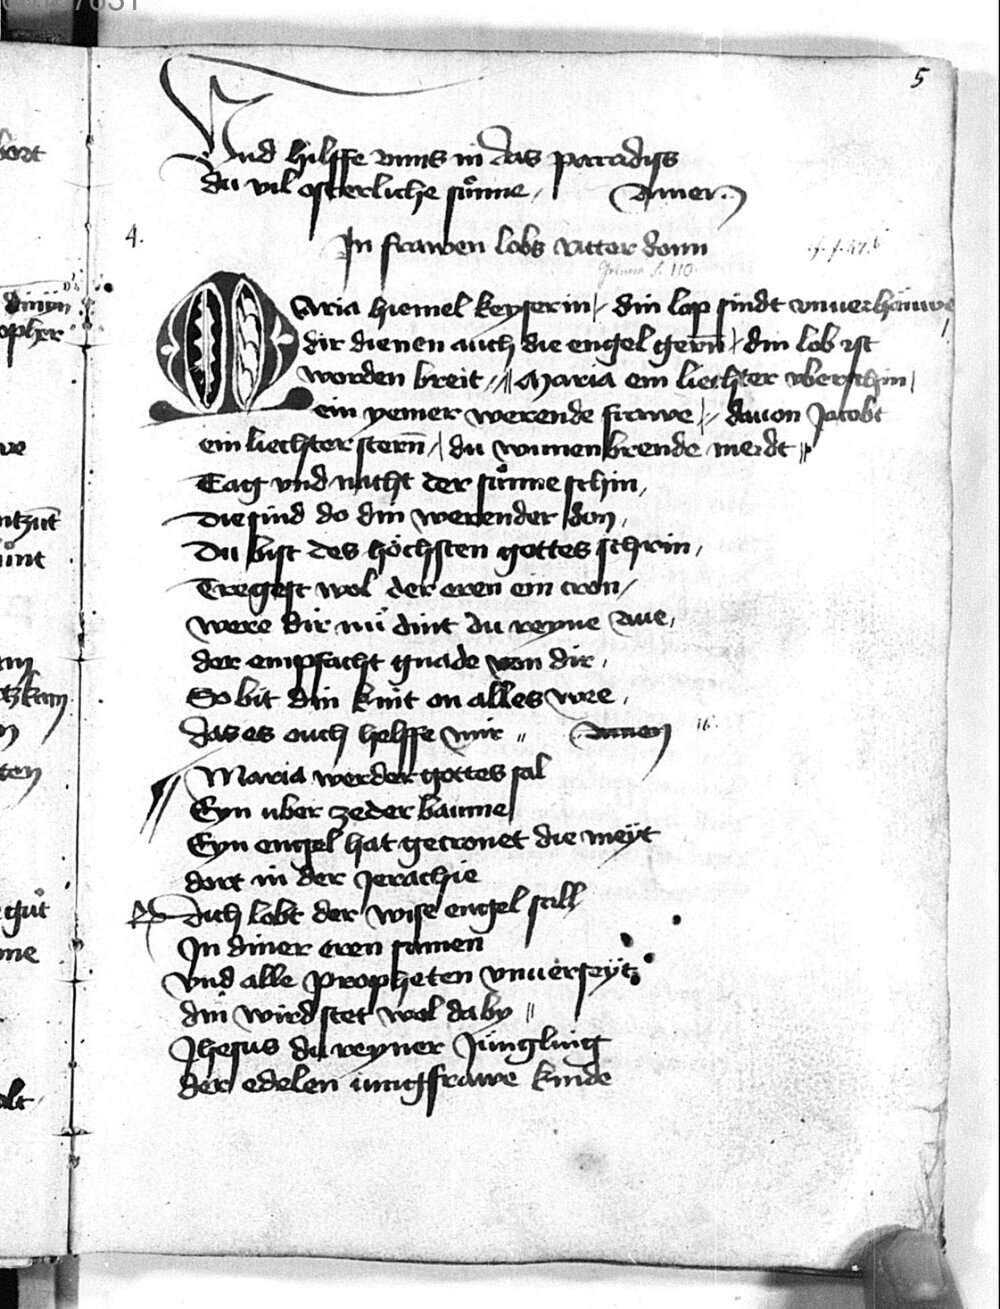 5
Und hilffe vnns in das paradiss
du vil osterliche sunne / Amen
4.
In frawen lobs ritter donn
Grimm S. 110.
Maria hiemel keyserin / din lop sindt vnuerhauwe
dir dienen auch die engel gern / din lob ist
worden breit // Maria ein liechter vberschin /
ein yemer werende frawe / dauon Jacobs
ein liechter stern / du wunnenbrende meidt //
Tag vnd nacht der sunne schin /
Die sind do din werender don /
Du bist des höchsten gottes schrin /
Tregest wol der eren ein cron /
were dir nu dint du reyne aue /
der empfacht gnade von dir /
So bit din kint on alles wee /
das es auch helffe mir // Amen 16.
Maria werder gottes sal
Eyn uber zeder baume
Eyn engel hat getronet die meyt
dort in der Jerachie
Dich lobt der wise engel schall
In diner eren samen
Vnd alle propheten vnuerseyt
din wird stet wol da by //
Jhesus du reyner Jüngling
der edelen iungfrawe kinde